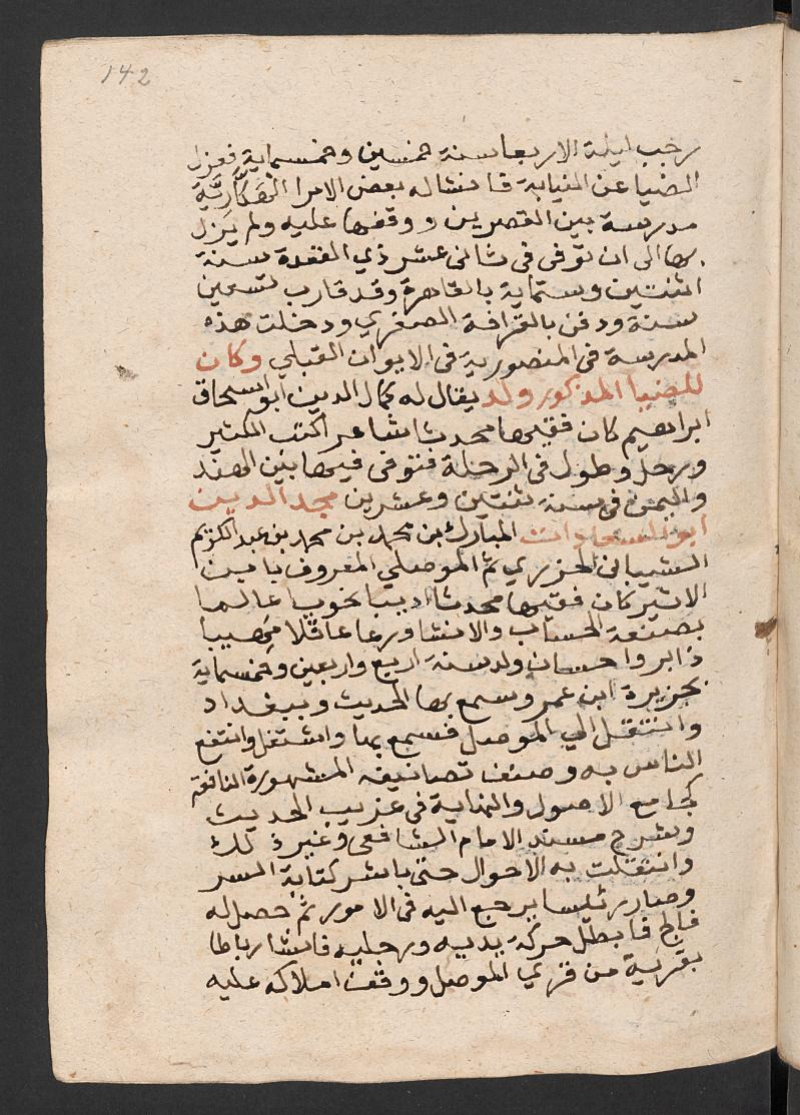 142
رجب ليلة الاربعا سنة خمسين وخمسماية فعزل
الضيا عن النيابة فانشا له بعض الامرا الهَكَّارِيَّة
مدرسة بين القصرين ووقفها عليه ولم يَزل
بها الى ان توفى فى ثانى عشر ذي القعدة سنة
اثنتين وستماية بالقاهرة وقد قارب تسعين
سنة ودفن بالقرافة الصغري ودخلت هذه
المدرسة فى المنصورية فى الايوان القبلي وكان
للضيا المذكور ولد يقال له كمال الدين ابو اسحاق
ابراهيم كان فقيها محدثا شاعرا كتب الكثير
ورحل وطول فى الرحلة فتوفى فيها بين الهند
واليمن فى سنة ثنتين وعشرين مجد الدين
ابو السعادات المبارك بن محمد بن محمد بن عبد الكريم
الشيبانى الجزري ثم الموصلي المعروف بابن
الاثير كان فقيها محدثا اديبا نحويا عالما
بصنعة الحساب والانشا ورعا عاقلا مَهيبا
ذا بر واحسان ولد سنة اربع واربعين وخمسماية
بجزيرة ابن عمر وسمع بها الحديث وببغداد
وانتقل الي الموصل فسمع بها واشتغل وانتفع
الناس به وصنف تصانيفه المشهورة النافعة
كجامع الاصول والنهاية فى غريب الحديث
وشرح مسند الامام الشافعى وغير ذلك
وانتقلت به الاحوال حتى باشر كتابة السر
وصار رئيسا يرجع اليه فى الامور ثم حصل له
فالج فابطل حركة يديه ورجليه فانشا رباطا
بقرية من قري الموصل ووقف املاكه عليه